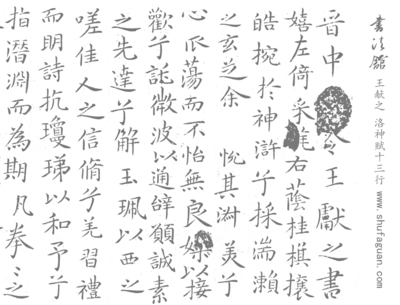 書法館
王献之 洛神賦十三行 www.shufaguan.com
晉中令王獻之書
嬉左倚采旄右蔭桂棋攘
皓捥於神滸兮採湍瀨
之玄芝余悅其淑美兮
心蕩而不怡無良媒以接
歡兮託微波以通辝願誠素
之先達兮解玉珮以要之
嗟佳人之信脩兮羌習禮
而明詩抗瓊珶以和予兮
指潛淵而為期拳之